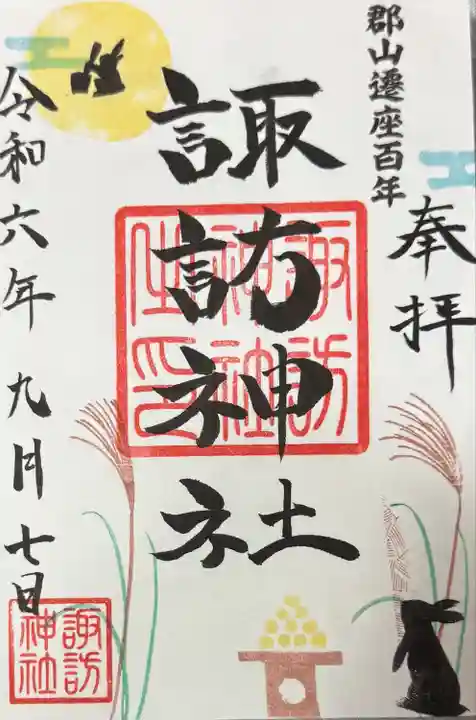 郡山遷座百年
奉拝
諏訪神社
諏訪
神社
宮印
令和六年九月七日
諏訪
神社